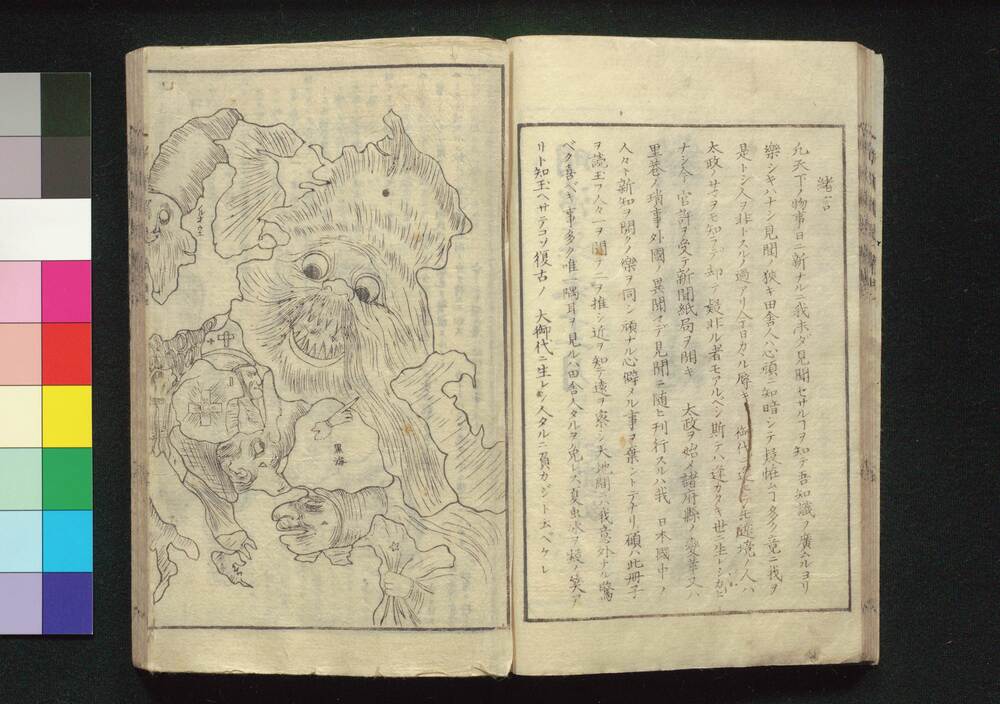 緒言
凡天下ノ物事日ニ新ナルニ我未ダ見聞セサルヿヲ知テ吾知識ヲ廣ムルヨリ
樂シキハナシ見聞ノ狹キ田舎人ハ心頑ニ知暗シテ疑惟ムヿ多ク竟ニ我ヲ
是トシ人ヲ非トスルノ過アリ今日カヽル辱キ 御代ニ邊土ノ人ハ
太政ノ サヲモ知ラテ却テ疑非ル者モアルベシ斯テハ逢カタキ世ニ生レシカヒ
ナシ今 官許ヲ受テ新聞紙局ヲ開キ 太政ヲ始メ諸府縣ノ變革又ハ
里巷ノ瑣事外國ノ異聞マデ見聞ニ随ヒ刊行スルハ我 日本國中ノ
人々ト新知ヲ開クノ樂ヲ同シ頑ナル心僻メル事ヲ棄ントテナリ願ハ此冊子
ヲ読玉フ人々一ヲ聞テ二ヲ推シ近ヲ知テ遠ヲ察シ天地間ニハ我意外ナル驚
ベク喜ベキ事多ク唯一隅耳ヲ見ルハ田舎人タルヲ免レス夏虫氷ヲ疑ノ笑ア
リト知玉ヘサテコソ復古ノ 大御代ニ生レシ人タルニ負カジト云ベケレ
黒海